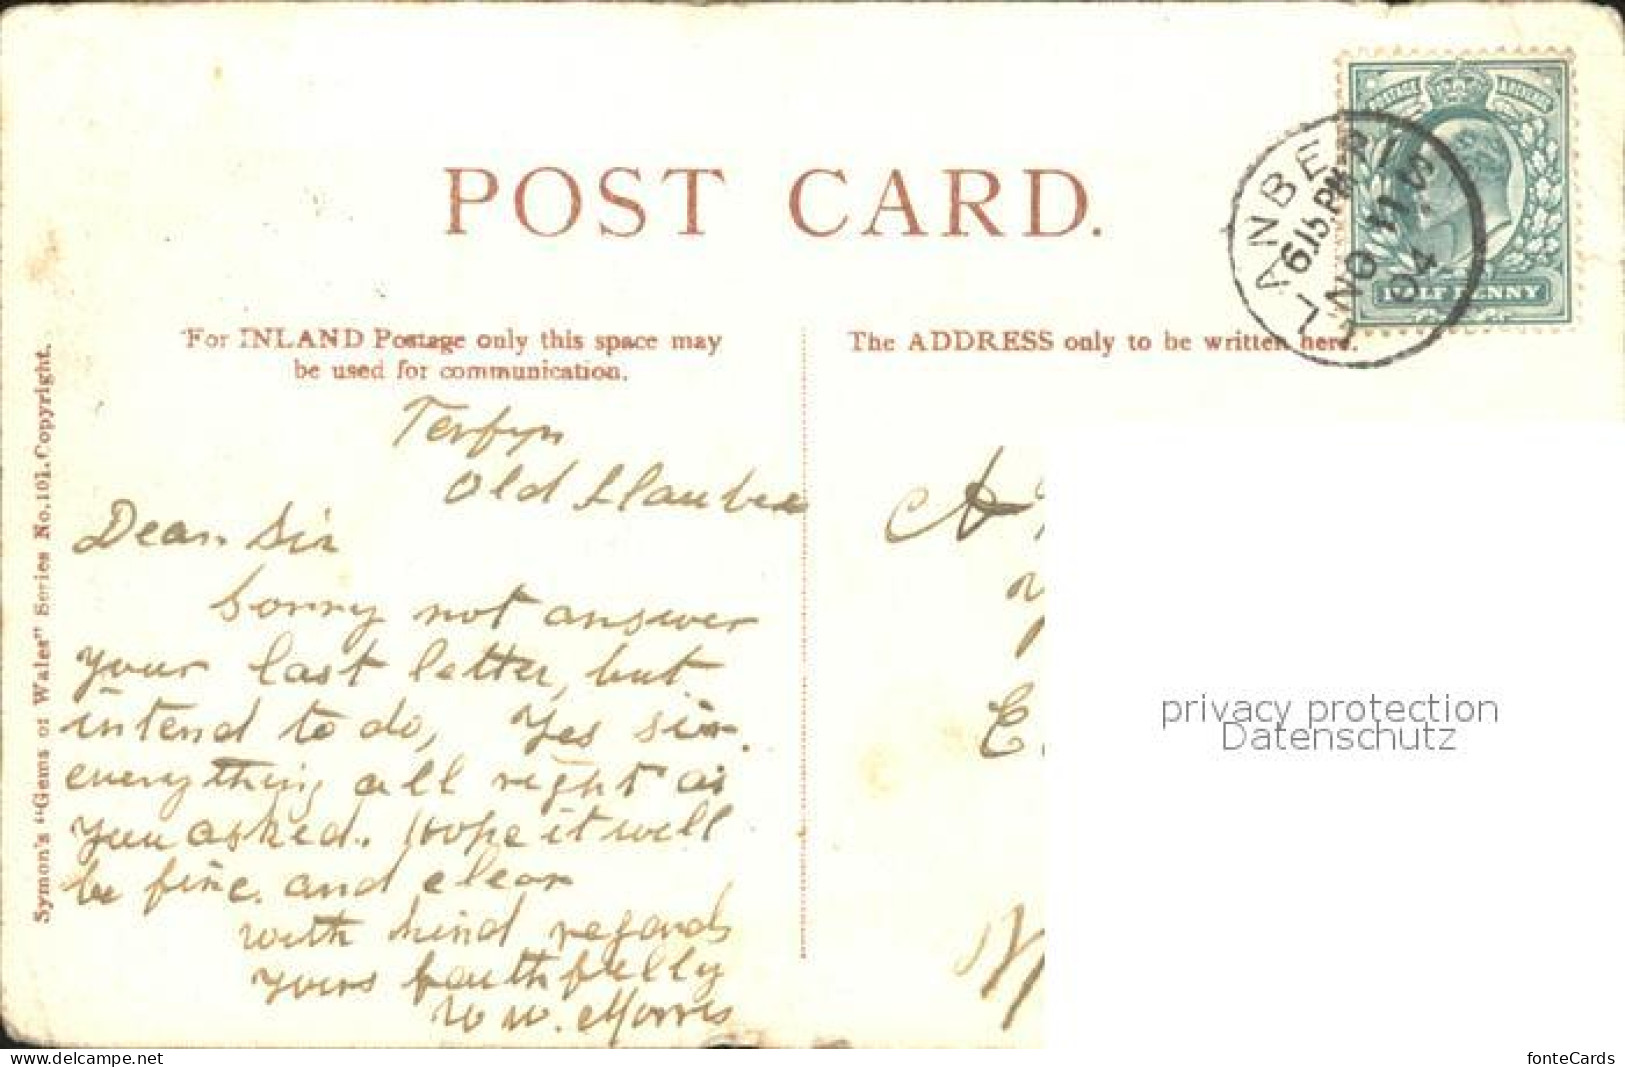 POST CARD.
POSTAGE & REVENUE
HALF PENNY
LLANBERIS
6.15 PM
NO 11
04
For INLAND Postage only this space may
be used for communication.
The ADDRESS only to be written here.
Symon's "Gems of Wales" Series No. 101. Copyright.
Terfyn
Old Llanberis
Dear Sir
Sorry not answer
your last letter, but
intend to do, Yes sir.
everything all right as
you asked. Hope it will
be fine and clear
with kind regards
yours faithfully
W W. Morris
A
E.
privacy protection
Datenschutz
fonteCards
www.delcampe.net